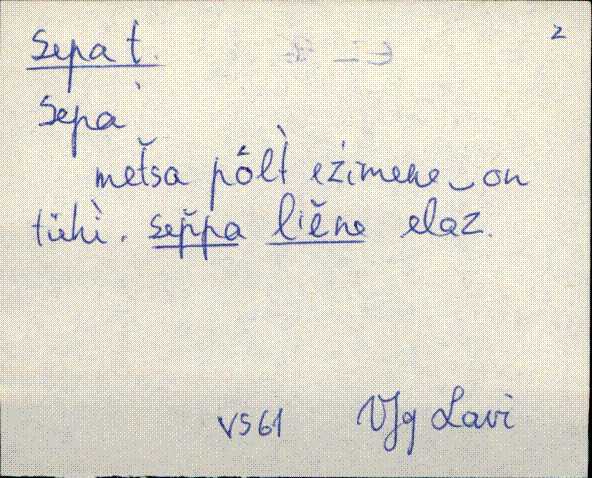 2
sepat.
sepa`
metšsa pôlt̀ ežimene‿on
tühì. sep̆pa liĕne elaz.
VS61 VJg Lavi